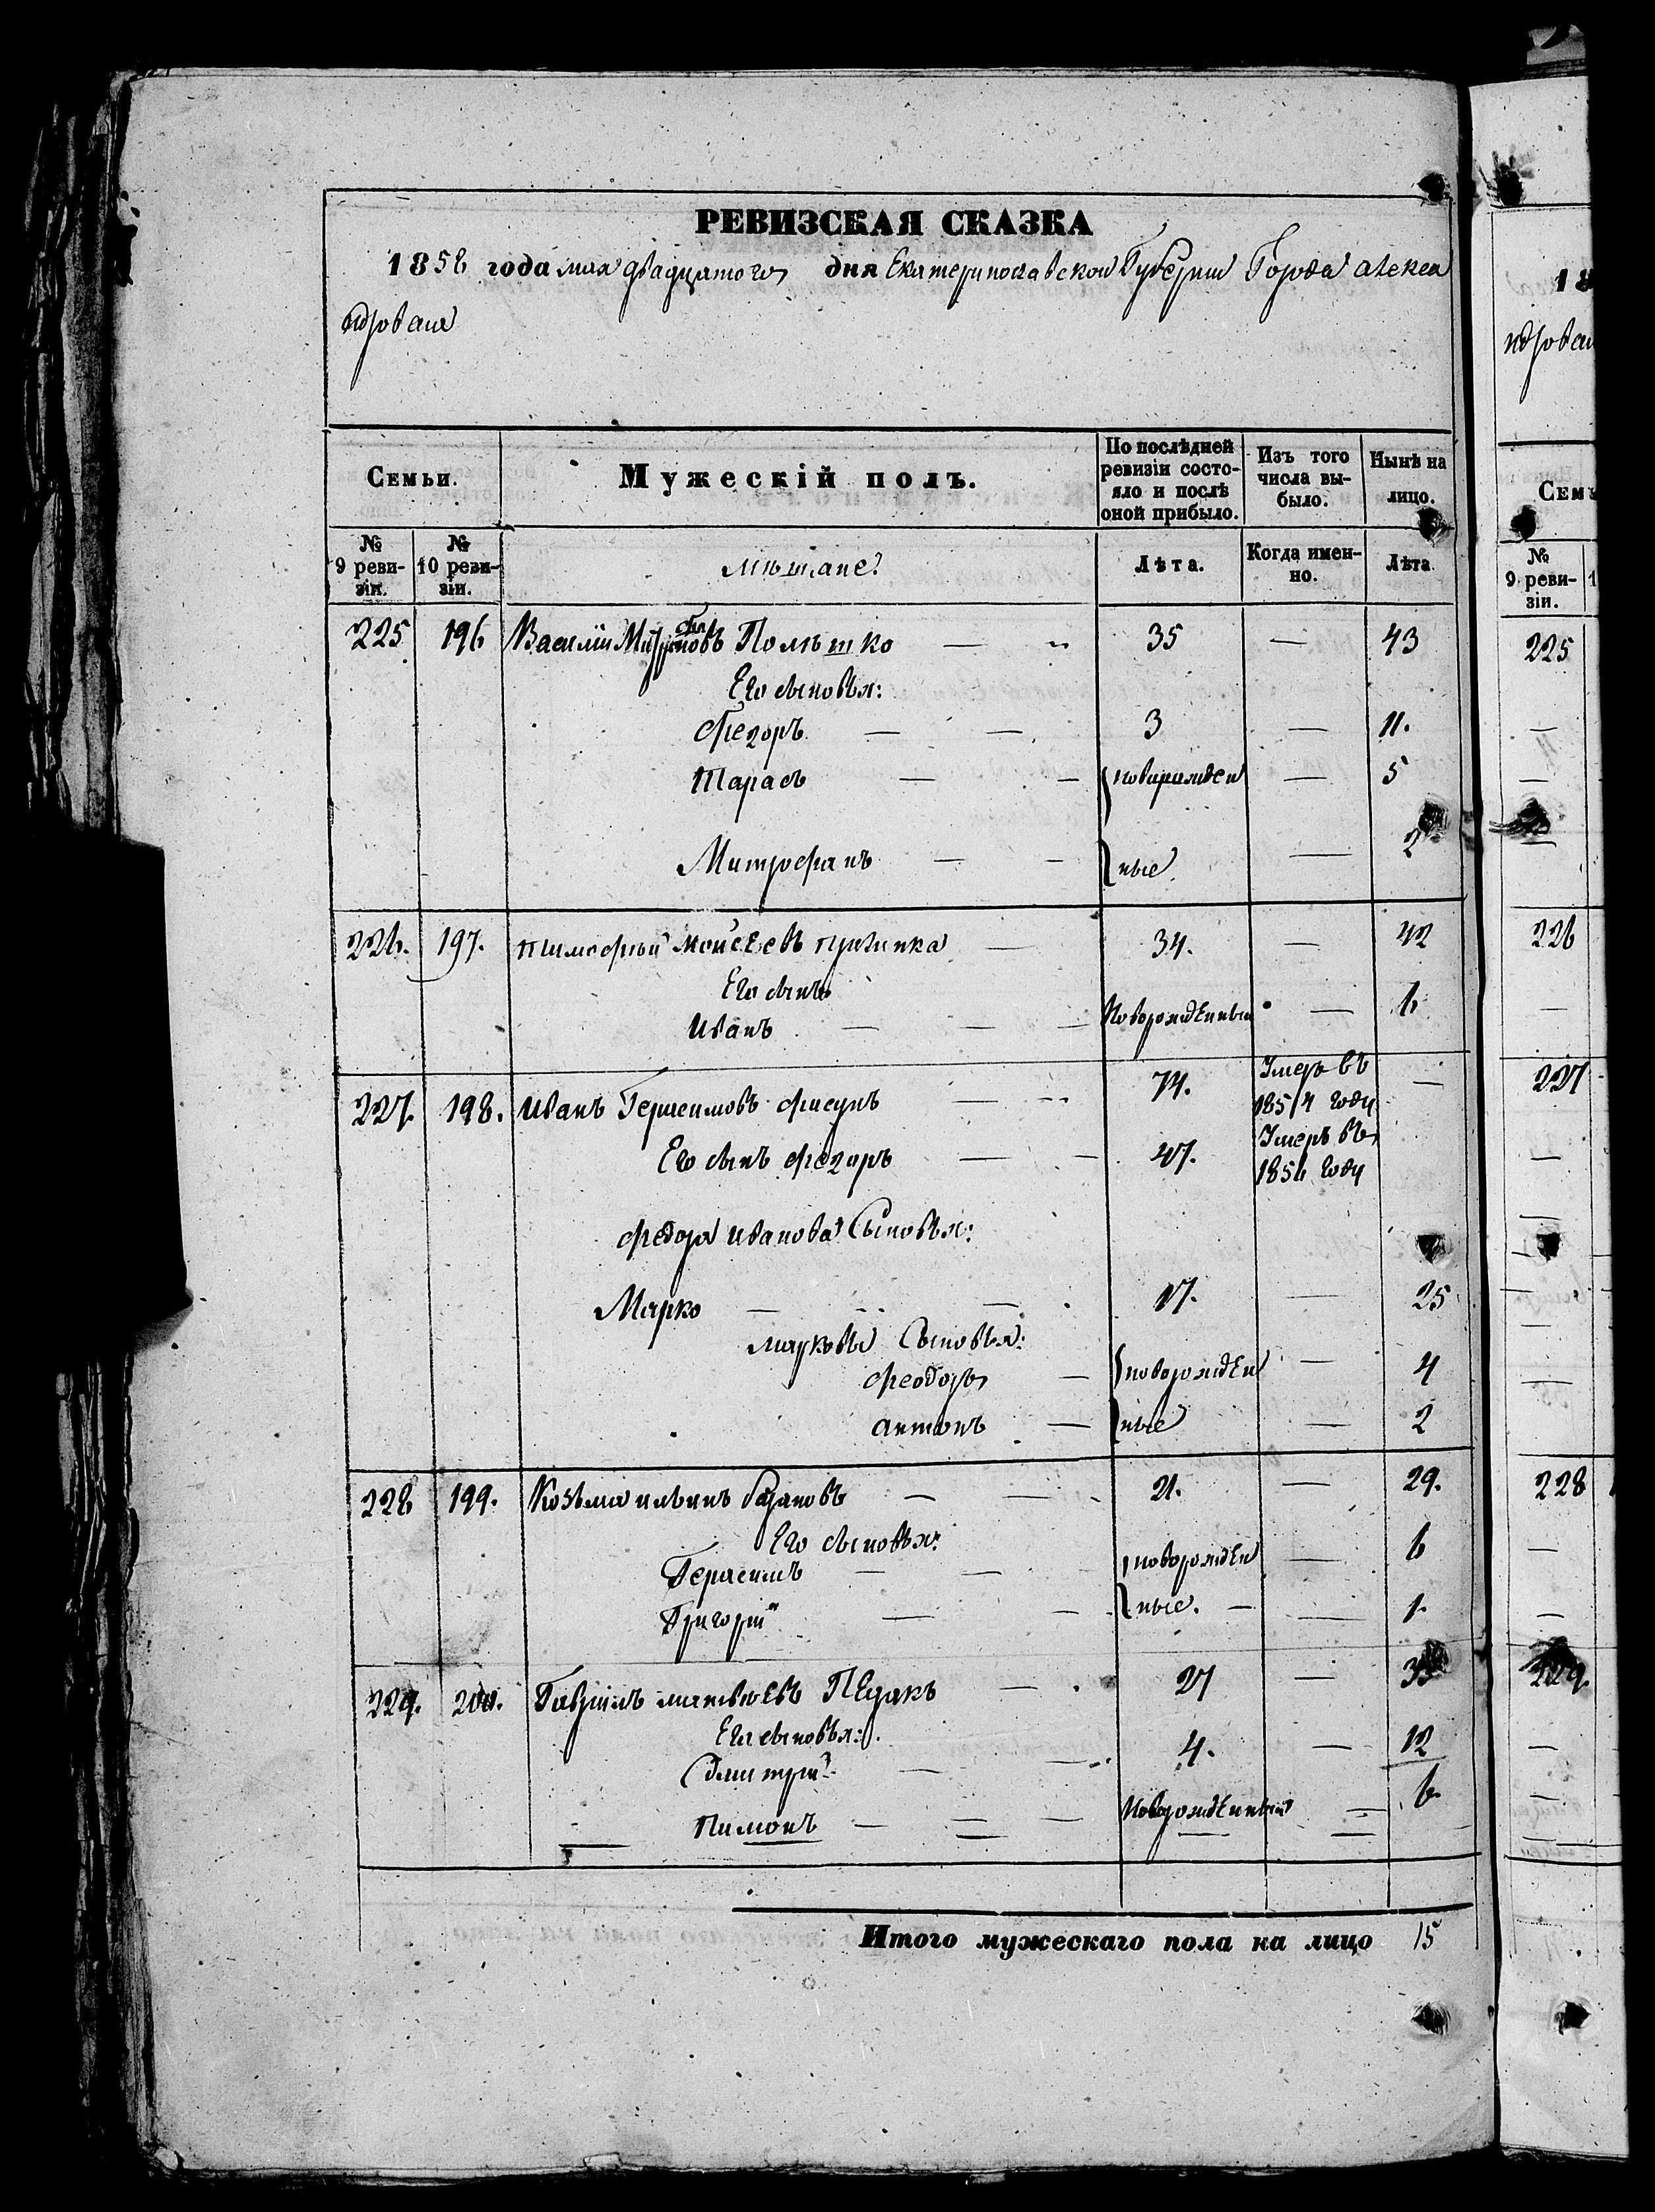 РЕВИЗСКАЯ СКАЗКА
1858 года мая двадцатого дня Екатеринославской Губернии Города Алекса
ндровска
Семьи. Мужескій полъ. По послѣдней ревизіи состояло и послѣ оной прибыло. Изъ того числа выбыло. Нынѣ на лицо.
№ 9 ревизіи. № 10 ревизіи. Мѣщане: Лѣта. Когда именно. Лѣта
225 196 Василій Помѣшко — 35 — 43
Его сыновья:
Фегоръ — — 3 — 11.
Тарасъ — — новорожден — 5
Митрофанъ — — ные — 2
226. 197. Тимофѣй Моисеевъ — 34. — 42
Его сынъ
Иванъ — — — Новорожденный — 6
227. 198. Иванъ Герасимовъ Фисунъ — 74. Умеръ въ 1854 году —
Его сынъ Фегоръ — — 47. Умеръ въ 1856 году
Федора Иванова Сыновья:
Марко — — 17. — 25
Марковы Сыновья:
Феодоръ — новорожден — 4
Антонъ — ные — 2
228 199. Козьма Ильинъ — — 21. — 29.
Его сыновья:
Герасимъ — — новорожден — 6
Григорій — — ные. — — 1.
229. 200. Гаврiилъ Матвѣевъ — 27 — 35
Его сыновья:
Дмитрій — — 4. — 12
Пимонъ — — — Новорожденный — 6
Итого мужескаго пола на лицо 15
18
ндровск
Семь
№ 9 ревизіи.
225
226
227
228
229.